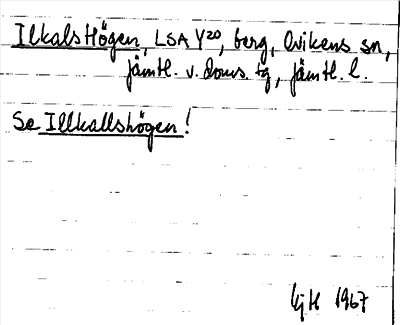 IlkalsHögen, LSA Y20, berg, Ovikens sn,
Jämtl. v. doms. tg, Jämtl. l.
Se Illkallshögen!
1967